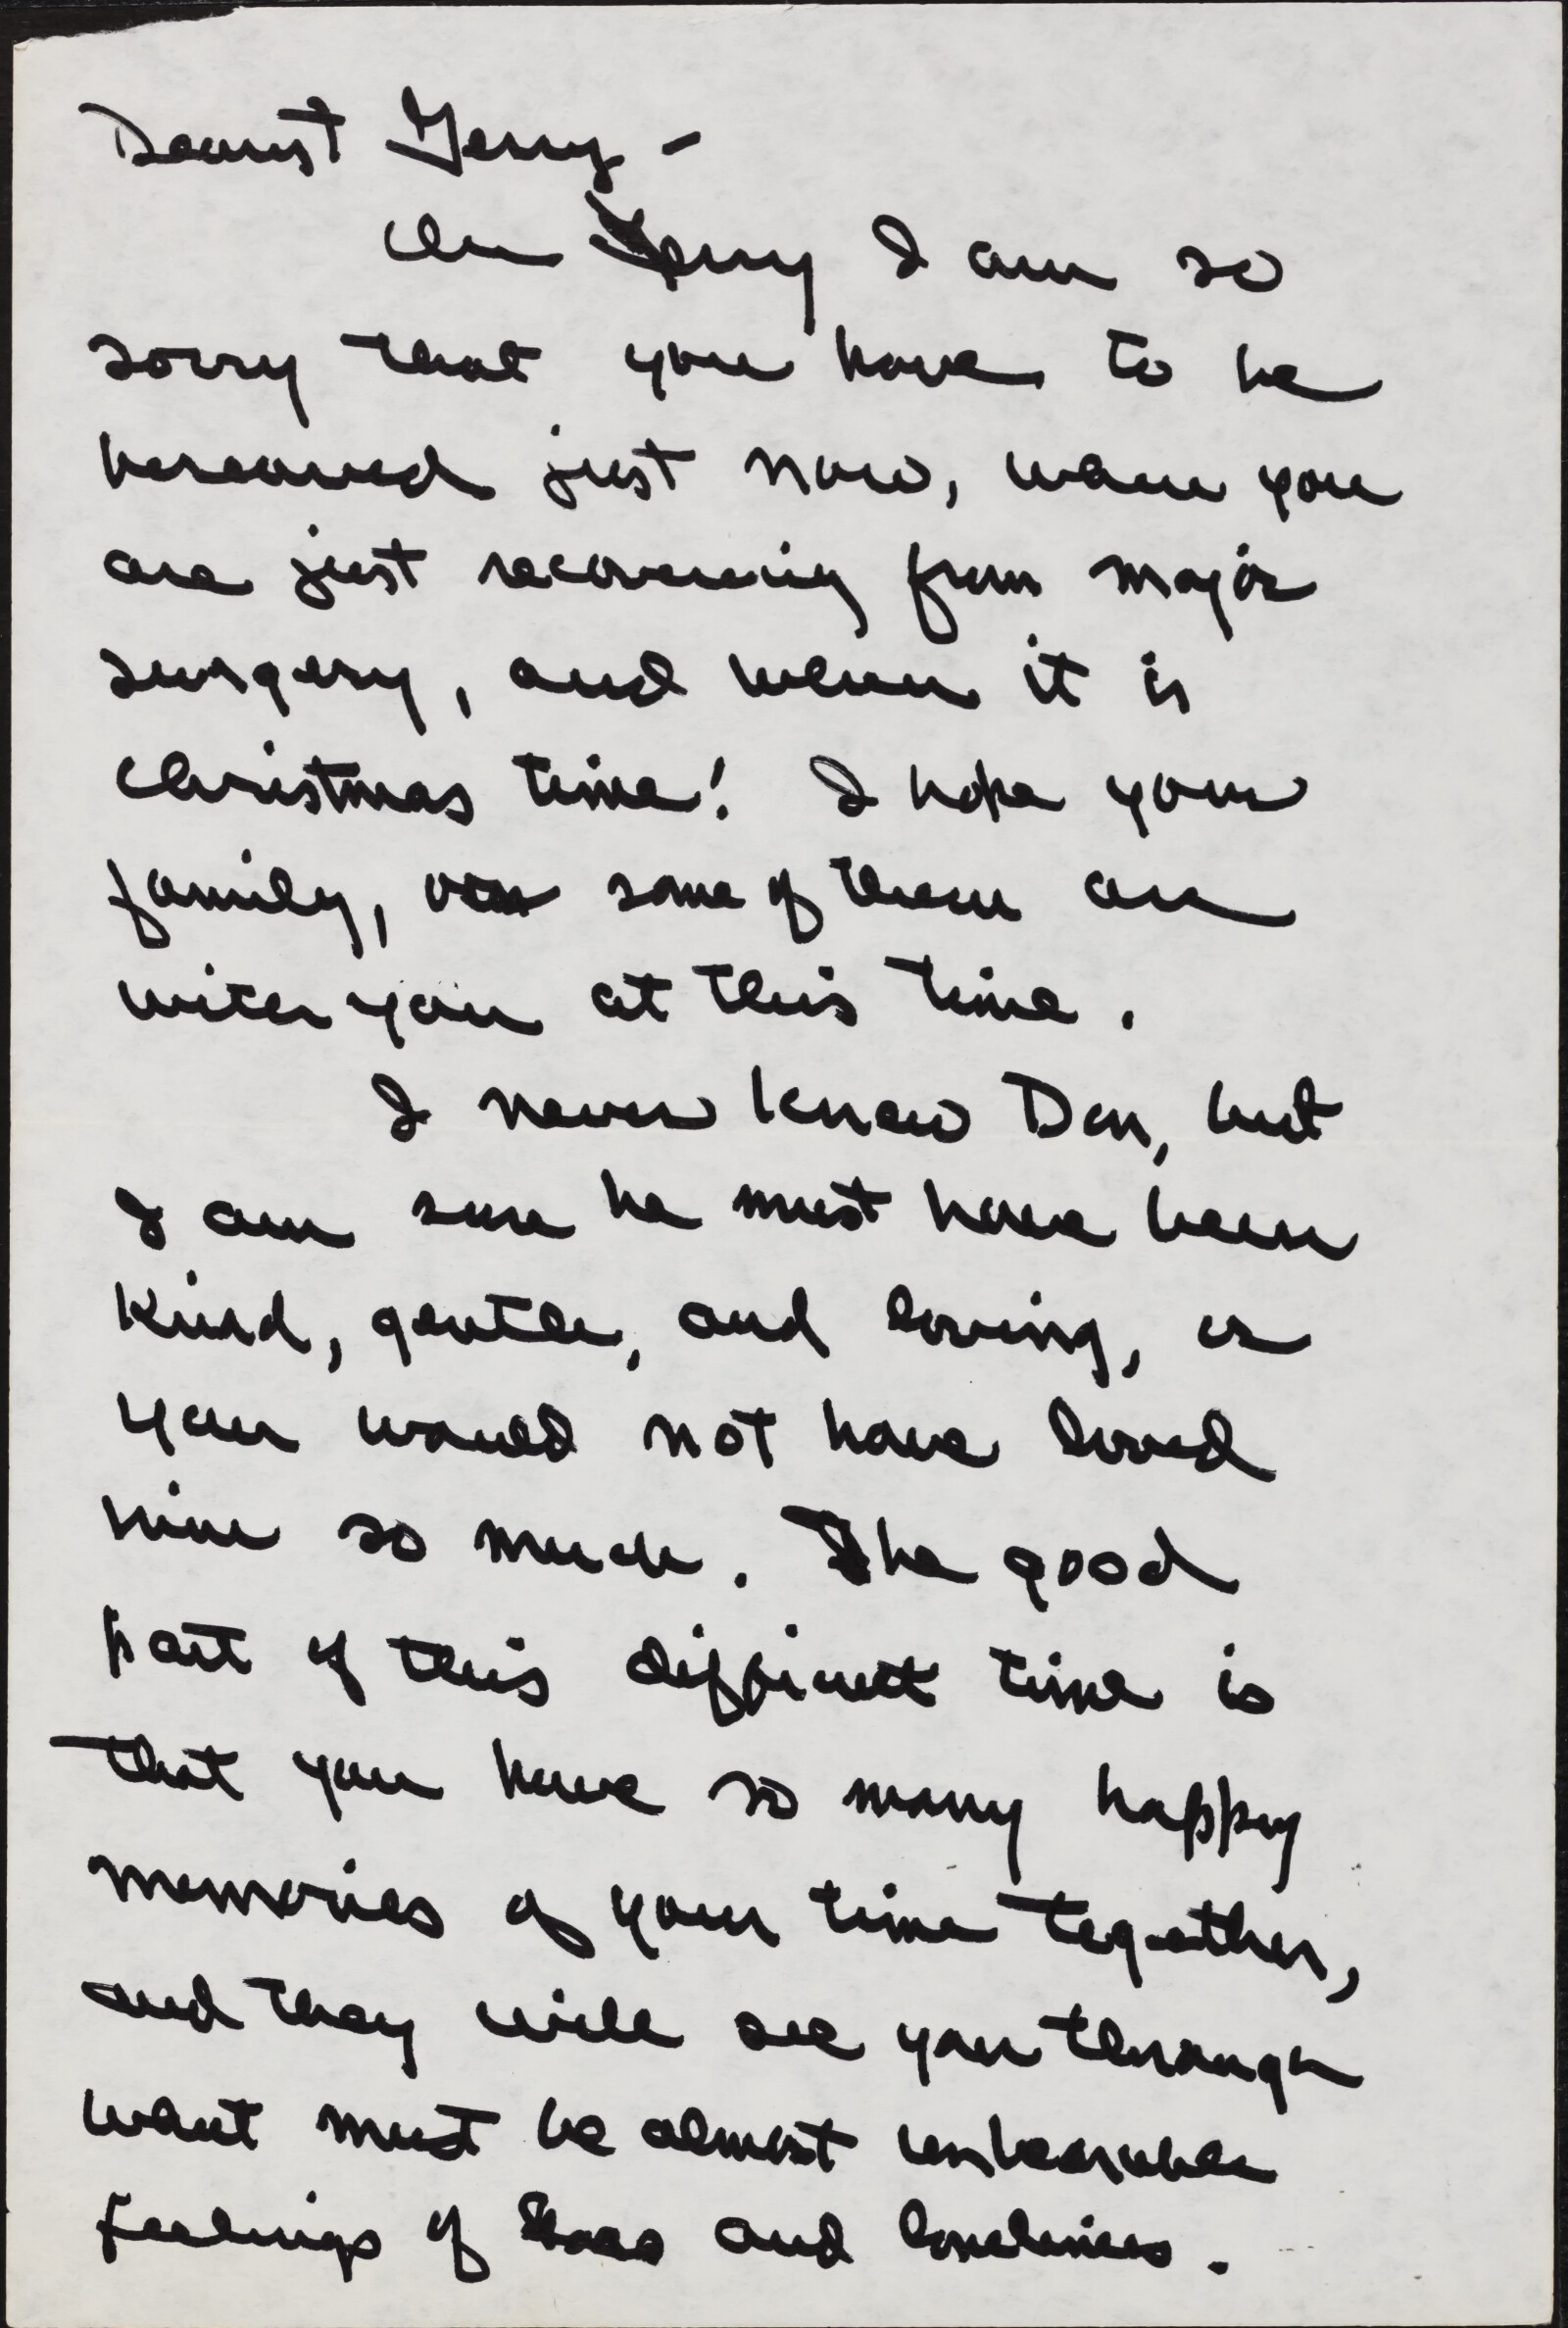 Dearest Jerry -
Oh Jerry I am so
sorry that you have to be
bereaved just now, when you
are just recovering from major
surgery, and when it is
Christmas time! I hope your
family, or some of them are
with you at this time.
I never knew Don, but
I am sure he must have been
kind, gentle, and loving, or
you would not have loved
him so much. The good
part of this difficult time is
that you have so many happy
memories of your time together,
and they will see you through
what must be almost unbearable
feelings of loss and loneliness.